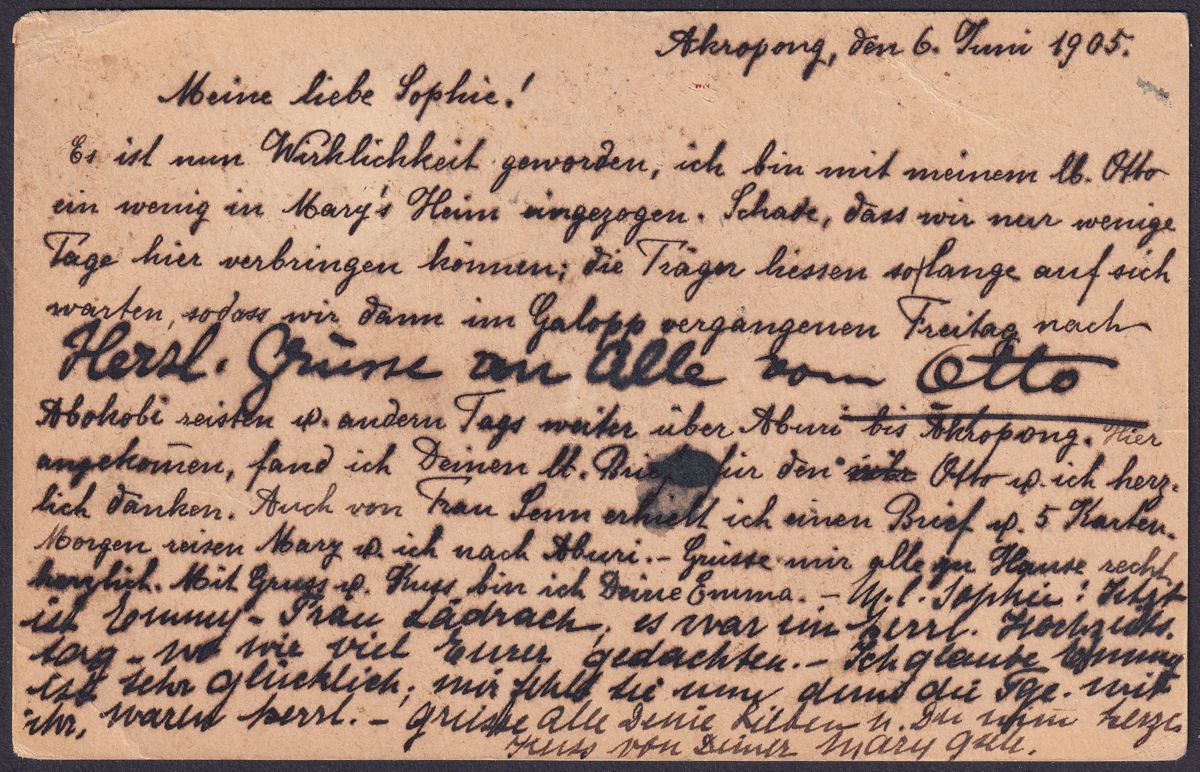 Akropong, den 6. Juni 1905.
Meine liebe Sophie!
Es ist nun Wirklichkeit geworden, ich bin mit meinem lb. Otto
ein wenig in Mary's Heim eingezogen. Schade, dass wir nur wenige
Tage hier verbringen können; die Träger liessen so lange auf sich
warten, sodass wir dann im Galopp vergangenen Freitag nach
Herzl. Grüsse an Alle vom Otto
Abokobi reisten u. andern Tags weiter über Aburi bis Akropong. Hier
angekom̄en, fand ich Deinen lb. Brief, für den Otto u. ich herz-
lich danken. Auch von Frau Senn erhielt ich einen Brief u. 5 Karten.
Morgen reisen Mary u. ich nach Aburi. – Grüsse mir alle zu Hause recht
herzlich. Mit Gruss u. Kuss bin ich Deine Emma. – M. l. Sophie! Jetzt
ist Emmy – Frau Lädrach, es war ein herrl. Hochzeits-
tag – wo wir viel Eurer gedachten. – Ich glaube Emmy
ist sehr glücklich; mir fehlt sie nun, denn die Tge. mit
ihr, waren herrl. – Grüsse alle Deine Lieben u. Du nimm herzl.
Kuss von Deiner Mary